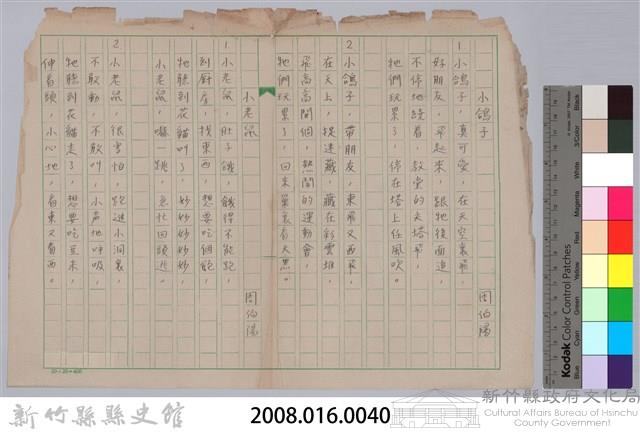 小鴿子
周伯陽
1 小鴿子,真可愛,在天空裏飛,
好朋友,飛起來,跟牠後面追,
不停地繞着,教堂的尖塔飛,
牠們玩累了,停在塔上任風吹。
2 小鴿子,帶朋友,東飛又西飛,
在天上,捉迷藏,藏在彩雲堆,
飛高高開個,熱鬧的運動會,
牠們玩累了,回來巢裏看天黑。
小老鼠
周伯陽
1 小老鼠,肚子餓,餓得不能跑,
到厨房,找東西,想要吃個飽,
牠聽到花貓叫了,妙妙妙妙妙,
小老鼠,嚇一跳,急忙回頭逃。
2 小老鼠,很害怕,跑進小洞裏,
不敢動,不敢叫,小聲地呼吸,
牠聽到花貓走了,想要吃豆米,
伸着頭,小心地,看東又看西。
20×20=400
新竹縣縣史館
2008.016.0040
新竹縣政府文化局
Cultural Affairs Bureau of Hsinchu
County Government
Kodak Color Control Patches
Blue
Cyan
Green
Yellow
Red
Magenta
White
3/Color
Black